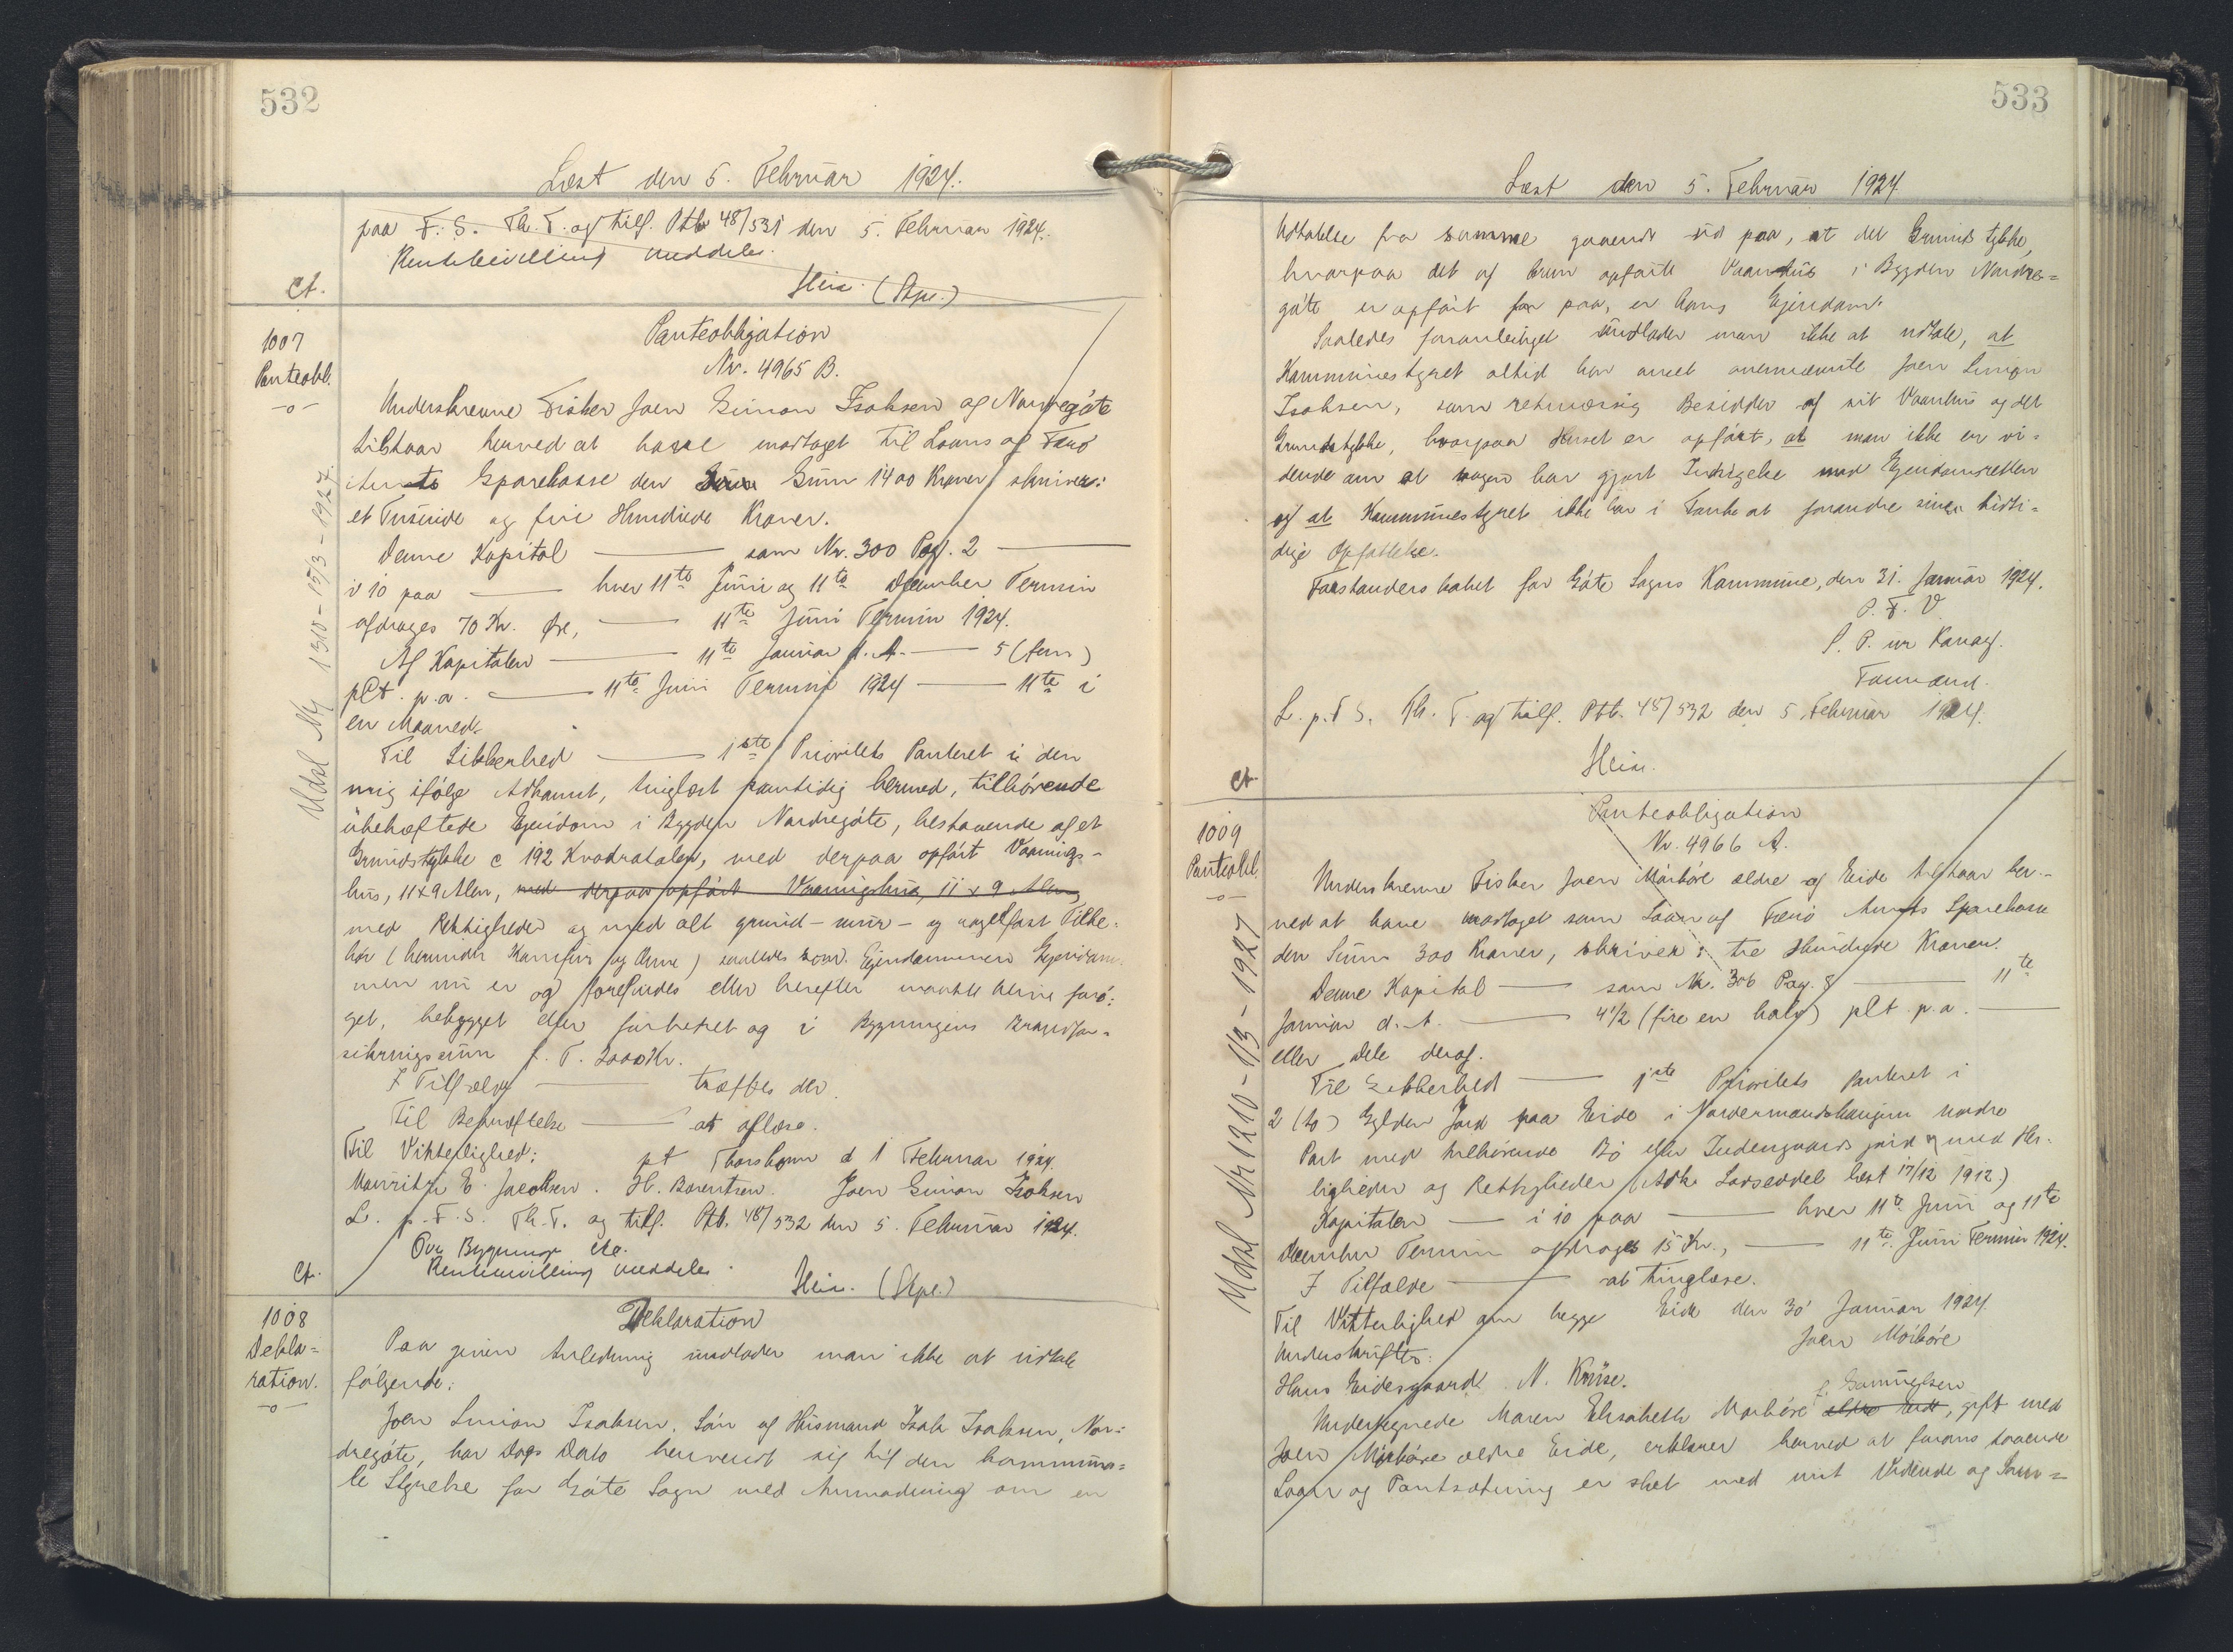 532
Læst den 5. Februar 1924.
paa F. S. Th. T. og tilf. Ptb 48/531 den 5. Februar 1924.
Rentebevilling meddeles.
Ct.
Heir. (Stpe.)
1007
Panteobl.
—o—
Udsl Nr 1310 - 15/3 - 1927.
Panteobligation
Nr. 4965 B.
Underskrevne Fisker Joen Simon Isaksen af Norregøte
tilstaar herved at have modtaget til Laans af Færø
Amts Sparekasse den Sum 1400 Kroner skriver:
et Tusinde og fire Hundrede Kroner.
Denne Kapital — som Nr. 300 Pag. 2 —
i 10 paa — hver 11te Juni og 11te December Termin
afdrages 70 Kr. Øre, — 11te Juni Termin 1924.
Af Kapitalen — 11te Januar d. A. — 5 (fem)
pCt. p.a. — 11te Juni Termin 1924 — 11te i
en Maaned.
Til Sikkerhed — 1ste Prioritets Panteret i den
mig ifølge Adkomst, tinglæst samtidig hermed, tilhørende
ubehæftede Ejendom i Bygden Nordregøte, bestaaende af et
Grundstykke c 192 Kvadratalen, med derpaa opført Vaanings-
hus, 11x9 Alen, med derpaa opført Vaaningshus, 11 x 9 Alen,
med Rettigheder og med alt grund- mur- og nagelfast Tilbe-
hør (herunder Komfur og Ovne) saaledes som Ejendommen
men nu er og forefindes eller herefter maatte blive forø-
get, bebygget eller forbedret og i Bygningens Brandfor-
sikringssum f. T. 2000 Kr.
I Tilfælde — træffes der.
Til Bekræftelse — at aflæse.
Til Vitterlighed: pt Thorshavn d 1 Februar 1924.
Mouritz E. Jacobsen. H. Berentsen. Joen Simon Isaksen
L. p. F. S. Th. T. og tilf. Ptb. 48/532 den 5. Februar 1924.
Ovr Bygninge etc.
Rentebevilling meddeles.
Ct.
Heir. (Stpe.)
1008
Dekla=
ration.
—o—
Deklaration
Paa given Anledning undlader man ikke at udtale
følgende:
Joen Simon Isaksen, Søn af Husmand Isak Isaksen, Nor-
dregøte, har Dags Dato henvendt sig til den kommuna=
le Styrelse for Gøte Sogn med Anmodning om en
533
Læst den 5. Februar 1924
Udtalelse fra samme gaaende ud paa, at det Grundstykke,
hvorpaa det af ham opførte Vaanhus i Bygden Nordre=
gøte er opført paa, er hans Ejendom.
Saaledes foranlediget undlader man ikke at udtale, at
Kommunestyret altid har anset ovennævnte Joen Simon
Isaksen, som retmæssig Besidder af sit Vaanhus og det
Grundstykke, hvorpaa Huset er opført, at man ikke er vi=
dende om at nogen har gjort Indsigelse mod Ejendomsretten
og at Kommunestyret ikke har i Tanke at forandre sin hidti=
dige Opfattelse.
Forstanderskabet for Gøte Sogns Kommune, den 31. Januar 1924.
P. F. V
Formand.
L. p. F S. Th. T. og tilf. Ptb. 48/532 den 5 Februar 1924.
Heir.
Ct.
1009
Panteobl.
—o—
Udsl Nr 1210 - 1/3 - 1927
Panteobligation
Nr. 4966 A.
Underskrevne Fisker Joen Mørkøre ældre af Eide tilstaar her-
ved at have modtaget som Laan af Færø Amts Sparekasse
den Sum 300 Kroner, skriver: tre Hundrede Kroner.
Denne Kapital — som Nr. 306 Pag. 8 — 11te
Januar d. A. — 4 1/2 (fire en halv) pCt. p.a. —
eller Dele deraf.
Til Sikkerhed — 1ste Prioritets Panteret i
2 (to) Gylden Jord paa Eide i Nordermandshaugen nordre
Part med tilhørende Bø eller Indengaards jord og med Her-
ligheder og Rettigheder (Adk. Lodseddel læst 17/12 1912.)
Kapitalen — i 10 paa — hver 11te Juni og 11te
December Termin afdrages 15 Kr., — 11te Juni Termin 1924.
I Tilfælde — at tinglæse.
Til Vitterlighed om begge Eide den 30 Januar 1924
Underskrifter: Joen Mørkøre
Hans Eidesgaard. N. Kruse.
f. Samuelsen
Undertegnede Maren Elisabeth Mørkøre ældre Eide, gift med
Joen Mørkøre ældre Eide, erklærer herved at foranstaaende
Laan og Pantsætning er sket med mit Vidende og Sam=